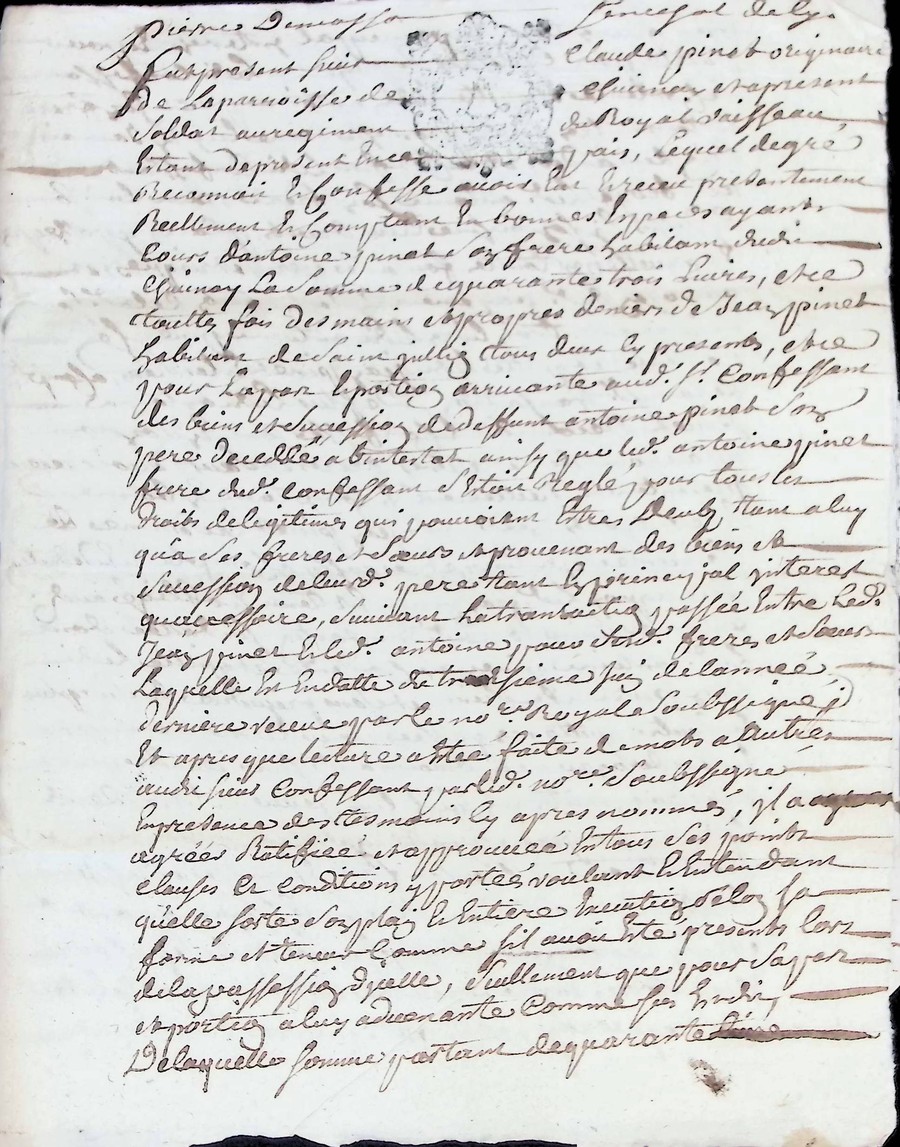 pierre Demasso Senechal de Ly.
fut present sieur Claude pinet originaire
de Laparroisse de Chuinay et apresent
soldat auregiment de Royal vaisseau
Estant depresent Ence pais, Lequel degré
Reconnoit Et Confesse avoir Eut Et receu presentement
Reellement Et Comptant En bonnes Especes ayants
Cours d'antoine pinet Son frere habitant dudi
Chuinay La Somme de quarante trois Livres, et ce
toutes fois des mains et propres deniers de Jean pinet
habitant de Saint jullin tous deux Cy presents, et ce
pour La part Et portion arrivante aud. Sr. Confessant
des biens et Succession de deffunt antoine pinet Son
pere decedé abintestat ainsy que led. antoine pinet
frere dud. Confessant Sestoit Reglé pour tous les
droits de legitimes qui pouvoient Estres Deubs tant a luy
qu'a Ses freres et Sœurs et provenant des biens et
Sucession de leurd. pere tant En principal ynterest
quaccessoire, Suivant La transaction passée Entre Led.
Jean pinet Et led. antoine pour Sesd. freres et Sœurs
Laquelle Est En datte du troisieme juin de lanneé
derniere receue par le nore. Royal Soubssigné,
Et apres que lecture a Esté faite de mots a Autres
audit sieur Confessant par led. nore. Soubssigné
En presence des tesmoins Cy apres nommés, jl a
agréé Ratifiée et approuvée En tous Ses points
Clauses Et Conditions y portés voulant Et Entendant
quelle sorte Son plain Et Entiere Execution Selon sa
forme et teneur Comme sil avoit Esté presents Lors
de la passassion dycelle, Seullement que pour Sa part
et portion a luy advenante Comme sus Est dit,
De laquelle somme partant de quarante